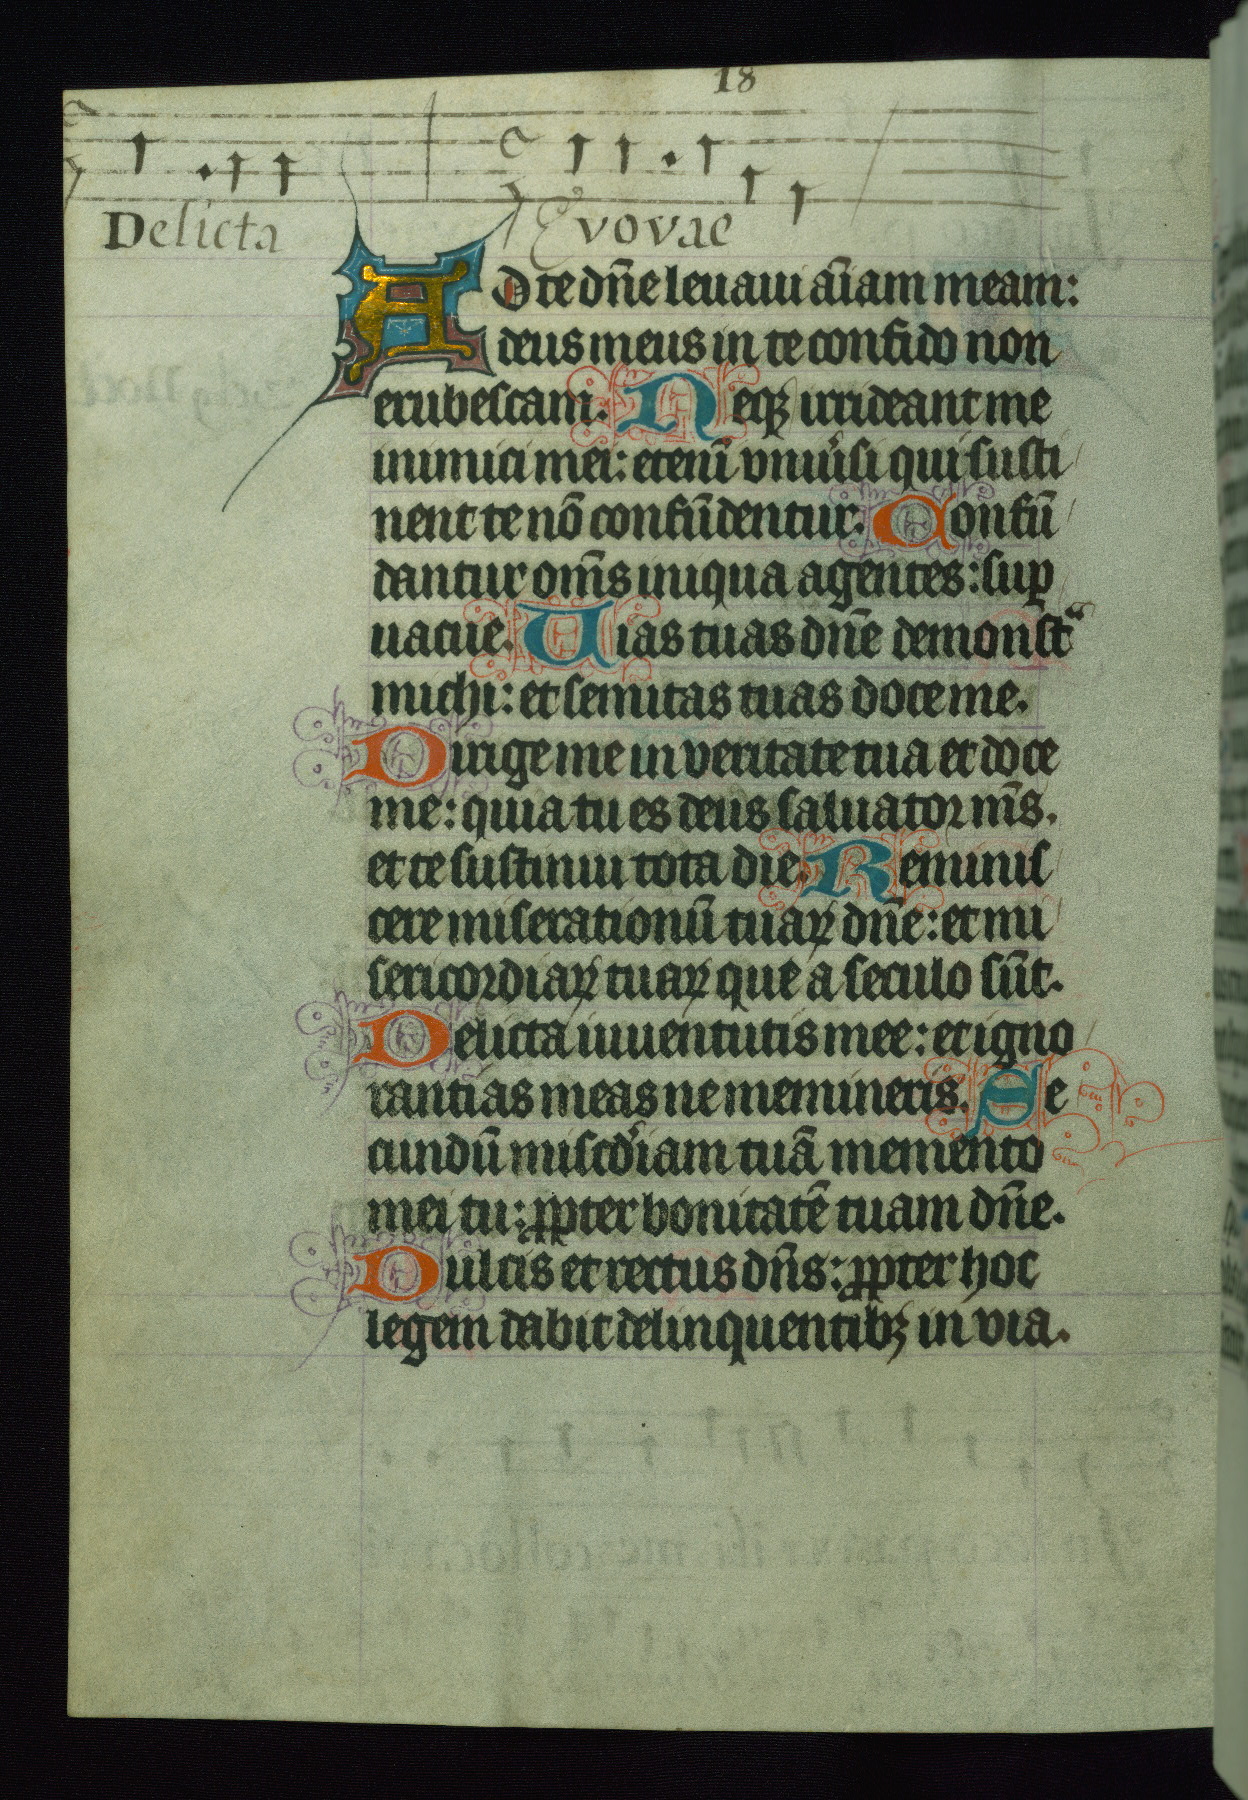 18
Delicta Evovae
Ad te dn̄e leuaui āīam meam:
deus meus in te confido non
erubescam. Neqꝫ irrideant me
inimici mei: etenī vniūsi qui susti
nent te nō confūdentur. Confū
dantur om̄s iniqua agentes: suꝑ
uacue. Uias tuas dn̄e demonstᵃ
michi: et semitas tuas doce me.
Dirige me in veritate tua et doce
me: quia tu es deus saluator nr̄s.
et te sustinui tota die. Reminis
cere miserationū tuaꝝ dn̄e: et mi
sericordiaꝝ tuaꝝ que a seculo sūt.
Delicta iuuentutis mee: et igno
rantias meas ne memineris. Se
cundū misc̄diam tuā memento
mei tu: ꝓpter bonitatē tuam dn̄e.
Dulcis et rectus dn̄s: ꝓpter hoc
legem dabit delinquentibꝫ in via.